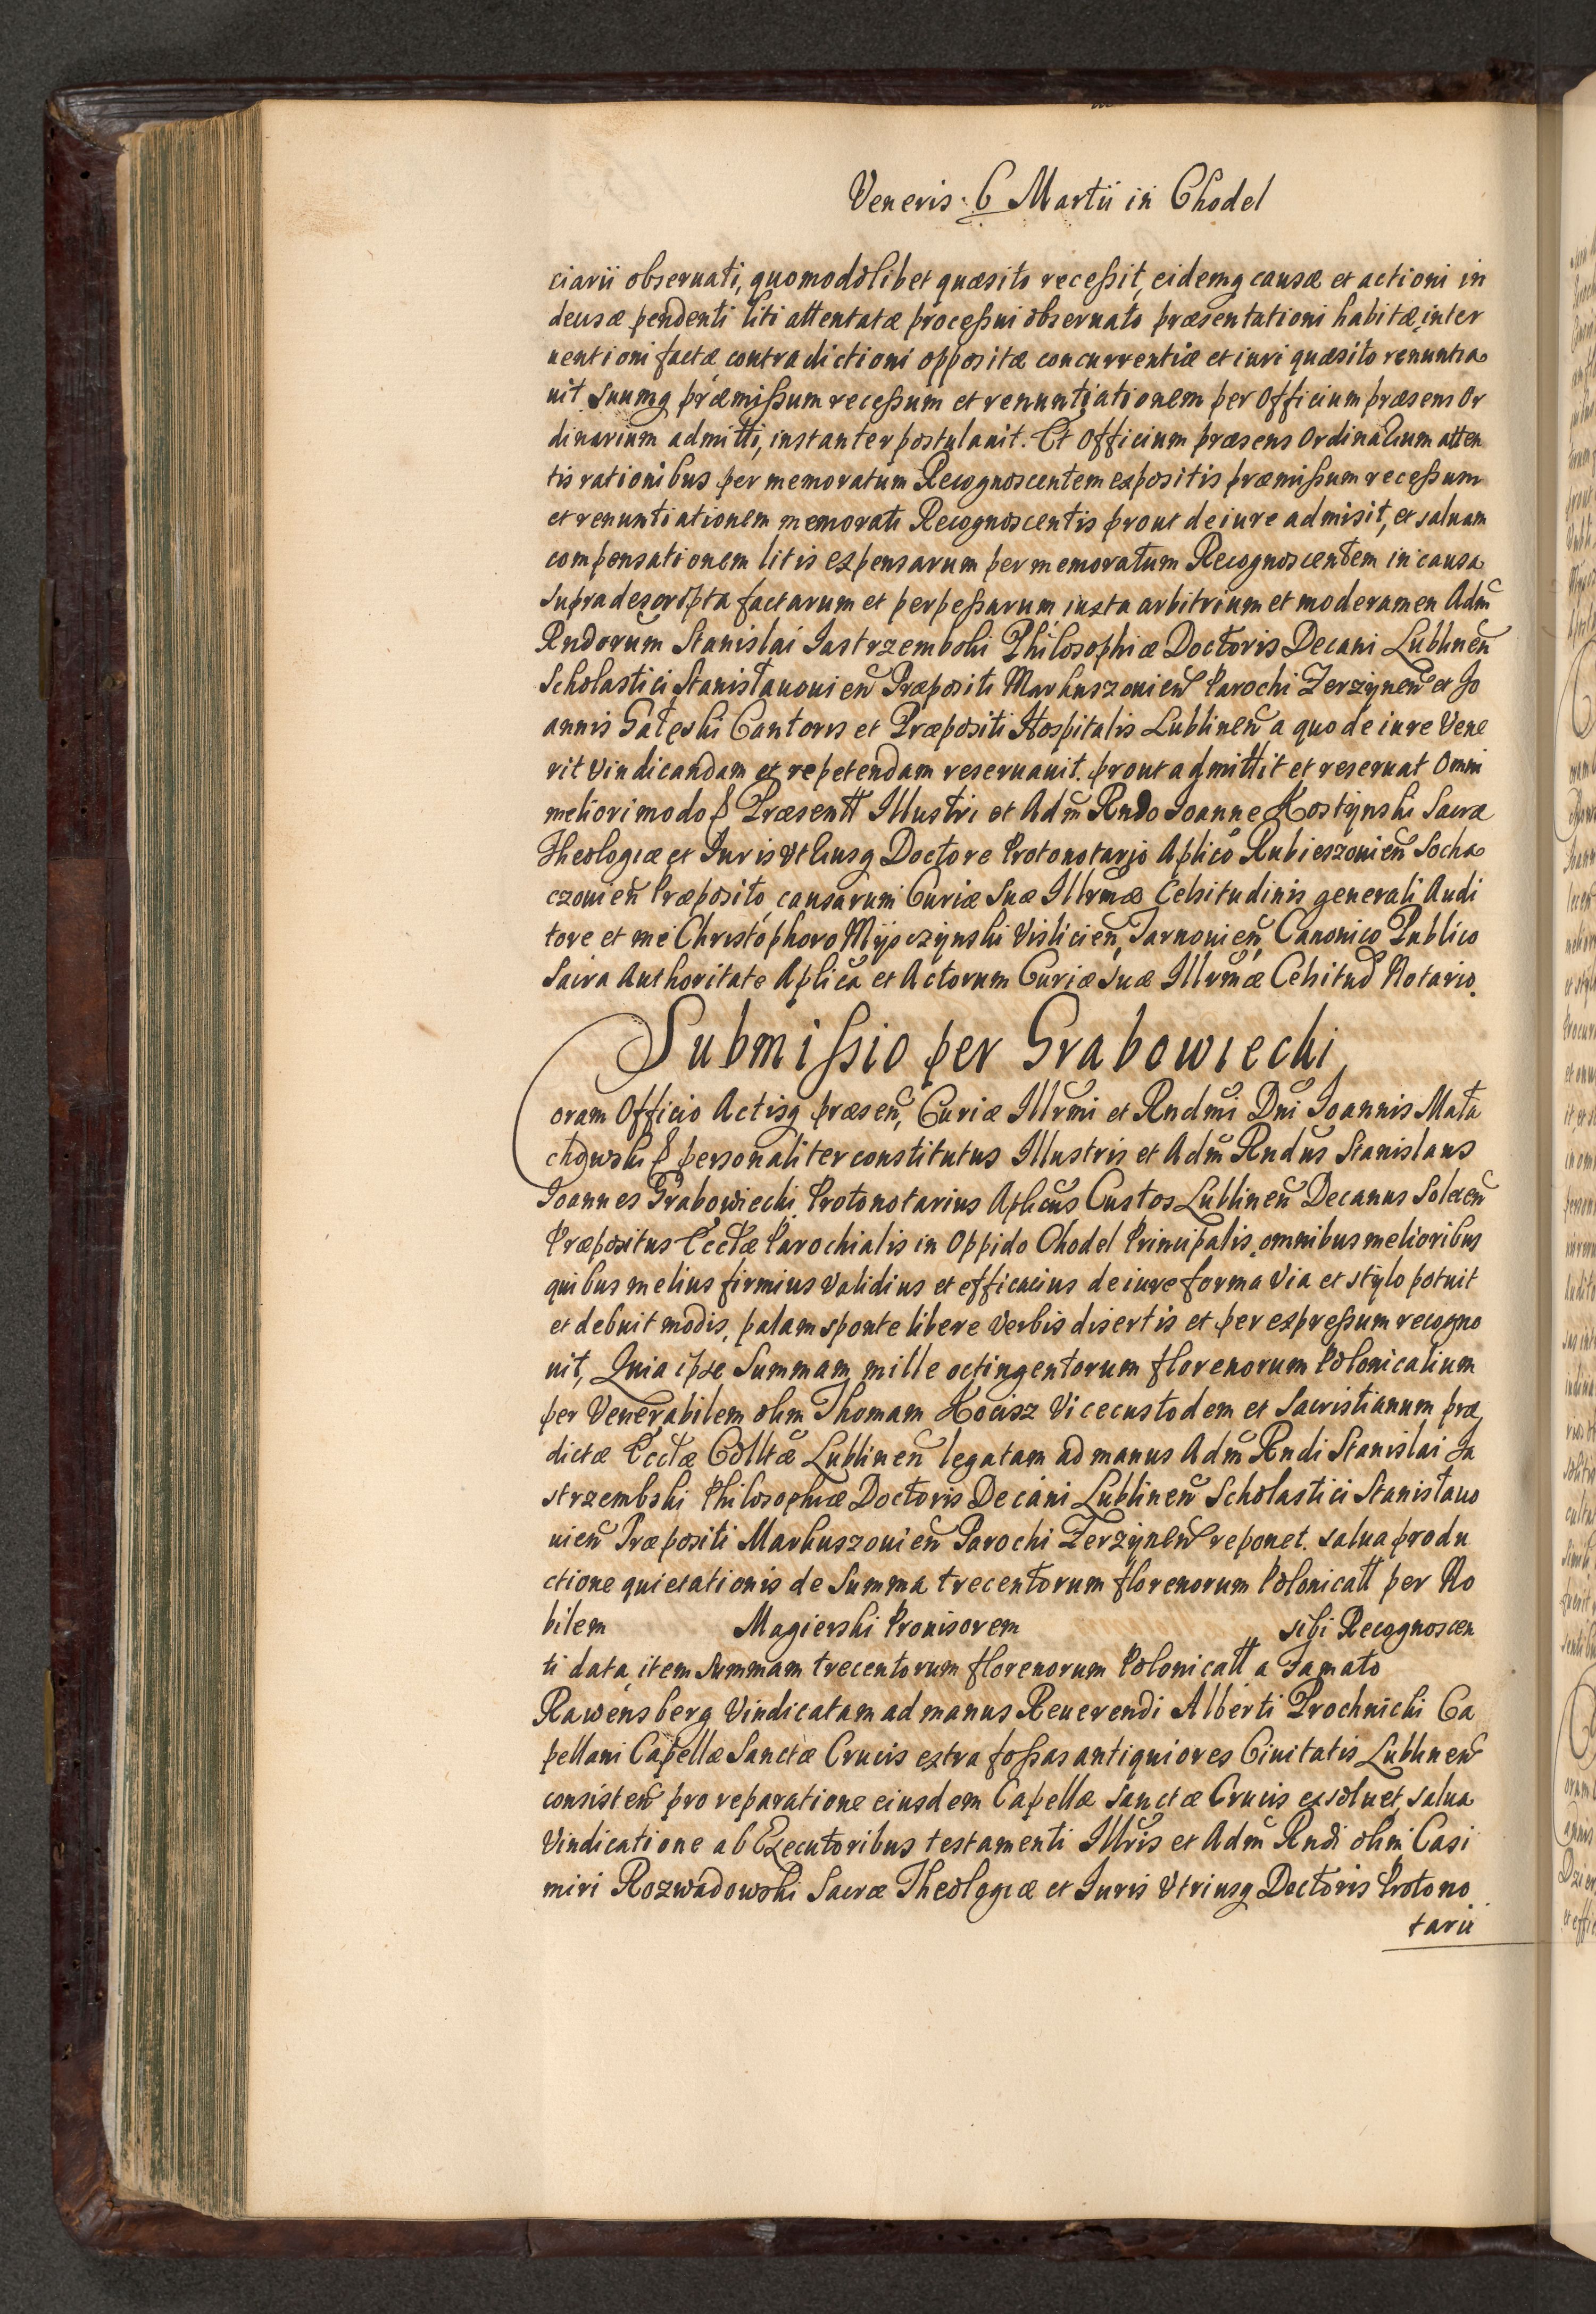 Veneris 6 Martii in Chodel
ciarii obseruati, quomodolibet quæsito recessit, eidemq causæ et actioni in
deusæ pendenti liti attentatæ processui obseruato præsentationi habitæ, inter
uentioni factæ contradictioni oppositæ concurrentiæ et iuri quæsito renuntia
uit Suumq præmissum recessum et renuntiationem per Officium præsens Or
dinarium admitti, instanter postulauit. Et Officium præsens Ordinarium atten
tis rationibus per memoratum Recognoscentem expositis præmissum recessum
et renuntiationem memorati Recognoscentis prout de iure admisit, et saluam
compensationem litis expensarum per memoratum Recognoscentem in causa
supradescripta factarum et perpessarum iuxta arbitrium et moderamen Adm̃
Rndorum Stanislai Jastrzembski Philosophiæ Doctoris Decani Lublineñ
Scholastici Stanisłauouieñ Præpositi Markuszouieñ Parochi Zerzyneñ et Jo
annis Gałęski Cantoris et Præpositi Hospitalis Lublineñ a quo de iure Vene
rit Vindicandam et repetendam reseruauit. prout admittit et reseruat Omni
meliori modo & Præsentt Illustri et Adm̃ Rndo Joanne Kostynski Sacræ
Theologiæ et Juris Vtriusq Doctore Protonotario Aplico Rubieszouieñ Socha
czouieñ Præposito, causarum Curiæ Suæ Illrmæ Celsitudinis generali Audi
tore et me Christophoro Myjsczynski Visliciẽn, Tarnouieñ Canonico Publico
Sacra Authoritate Aplica et Actorum Curiæ Suæ Illrmæ Celsitud Notario.
Submissio per Grabowiecki
Coram Officio Actisq præseñ, Curiæ Illrmi et Rndmi Dni Joannis Mała
chowski & personaliter constitutus Illustris et Adm̃ Rndus Stanislaus
Joannes Grabowiecki Protonotarius Aplicus Custos Lublineñ Decanus Soleceñ
Præpositus Ecctæ Parochialis in Oppido Chodel Principalis, omnibus melioribus
quibus melius firmius validius et efficacius de iure forma Via et stylo potuit
et debuit modis, palam sponte libere Verbis disertis et per expressum recogno
uit, Quia ipse Summam mille octingentorum florenorum Polonicalium
per Venerabilem olim Thomam Kocisz Vicecustodem et Sacristianum præ
dictæ Ecctæ Colltæ Lublineñ legatam ad manus Adm̃ Rndi Stanislai Ja
strzembski Philosophiæ Doctoris Decani Lublineñ Scholastici Stanisłauo
uieñ Præpositi Markuszouieñ Parochi Zerzyneñ reponet. salua produ
ctione quietationis de Summa trecentorum florenorum Polonicatt per No
bilem Magierski Prouisorem sibi Recognoscen
ti data, item summam trecentorum florenorum Polonicatt a Famato
Rawensberg Vindicatam ad manus Reuerendi Alberti Prochnicki Ca
pellani Capellæ Sanctæ Crucis extra fossas antiquiores Ciuitatis Lublineñ
consisteñ pro reparatione eiusdem Capellæ Sanctæ Crucis exsoluet, salua
Vindicatione ab Executoribus testamenti Illris et Adm̃ Rndi olim Casi
miri Rozwadowski Sacræ Theologiæ et Juris Vtriusq Doctoris Protono
tarii